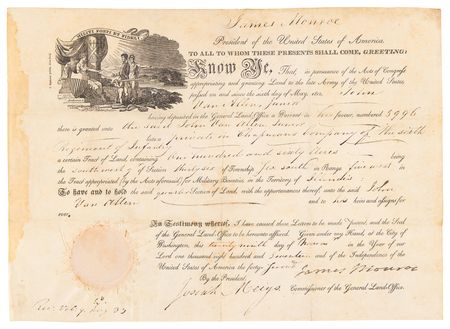 MILITI FORTI ET FIDELI
James Monroe
President of the United States of America.
TO ALL TO WHOM THESE PRESENTS SHALL COME, GREETING:
Know Ye, That, in pursuance of the Acts of Congress
appropriating and granting Land to the late Army of the United States,
passed on and since the sixth day of May, 1812, John
Van Allen, Junior
having deposited in the General Land-Office a Warrant in his favour, numbered 5996
there is granted unto the said John Van Allen Junior
later a private in Chapman's Company of the sixth
Regiment of Infantry
a certain Tract of Land, containing One hundred and sixty acres being
the southwest of Section thirty six of Township six south in Range five west in
the Tract appropriated (by the Acts aforesaid) for Military Bounties, in the Territory of Illinois
To have and to hold the said quarter Section of Land, with the appurtenances thereof, unto the said John
Van Allen and to his heirs and assigns for
ever.
In Testimony whereof, I have caused these Letters to be made Patent, and the Seal
of the General Land-Office to be hereunto affixed. Given under my Hand, at the City of
Washington, this twenty ninth day of in the Year of our
Lord one thousand eight hundred and seventeen and of the Independence of the
United States of America the forty-second
By the President,
James Monroe
Josiah Meigs Commissioner of the General Land-Office.
Rec.